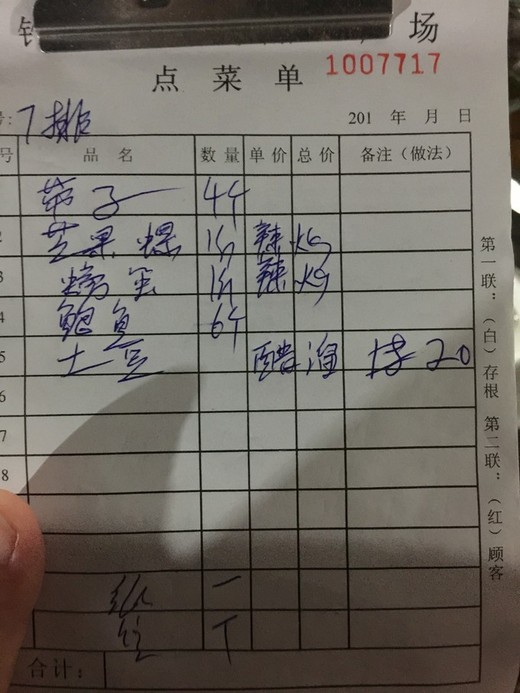 场
点菜单 1007717
号: 7排 201 年 月 日
号 品名 数量 单价 总价 备注（做法）
带子 4个
芒果螺 1份 辣炒
2
螃蟹 1份 辣炒
3
鲍鱼 6个
4
土豆 醋溜
5
6
7
8
纸 一
合计：
第一联：（白）存根 第二联：（红）顾客